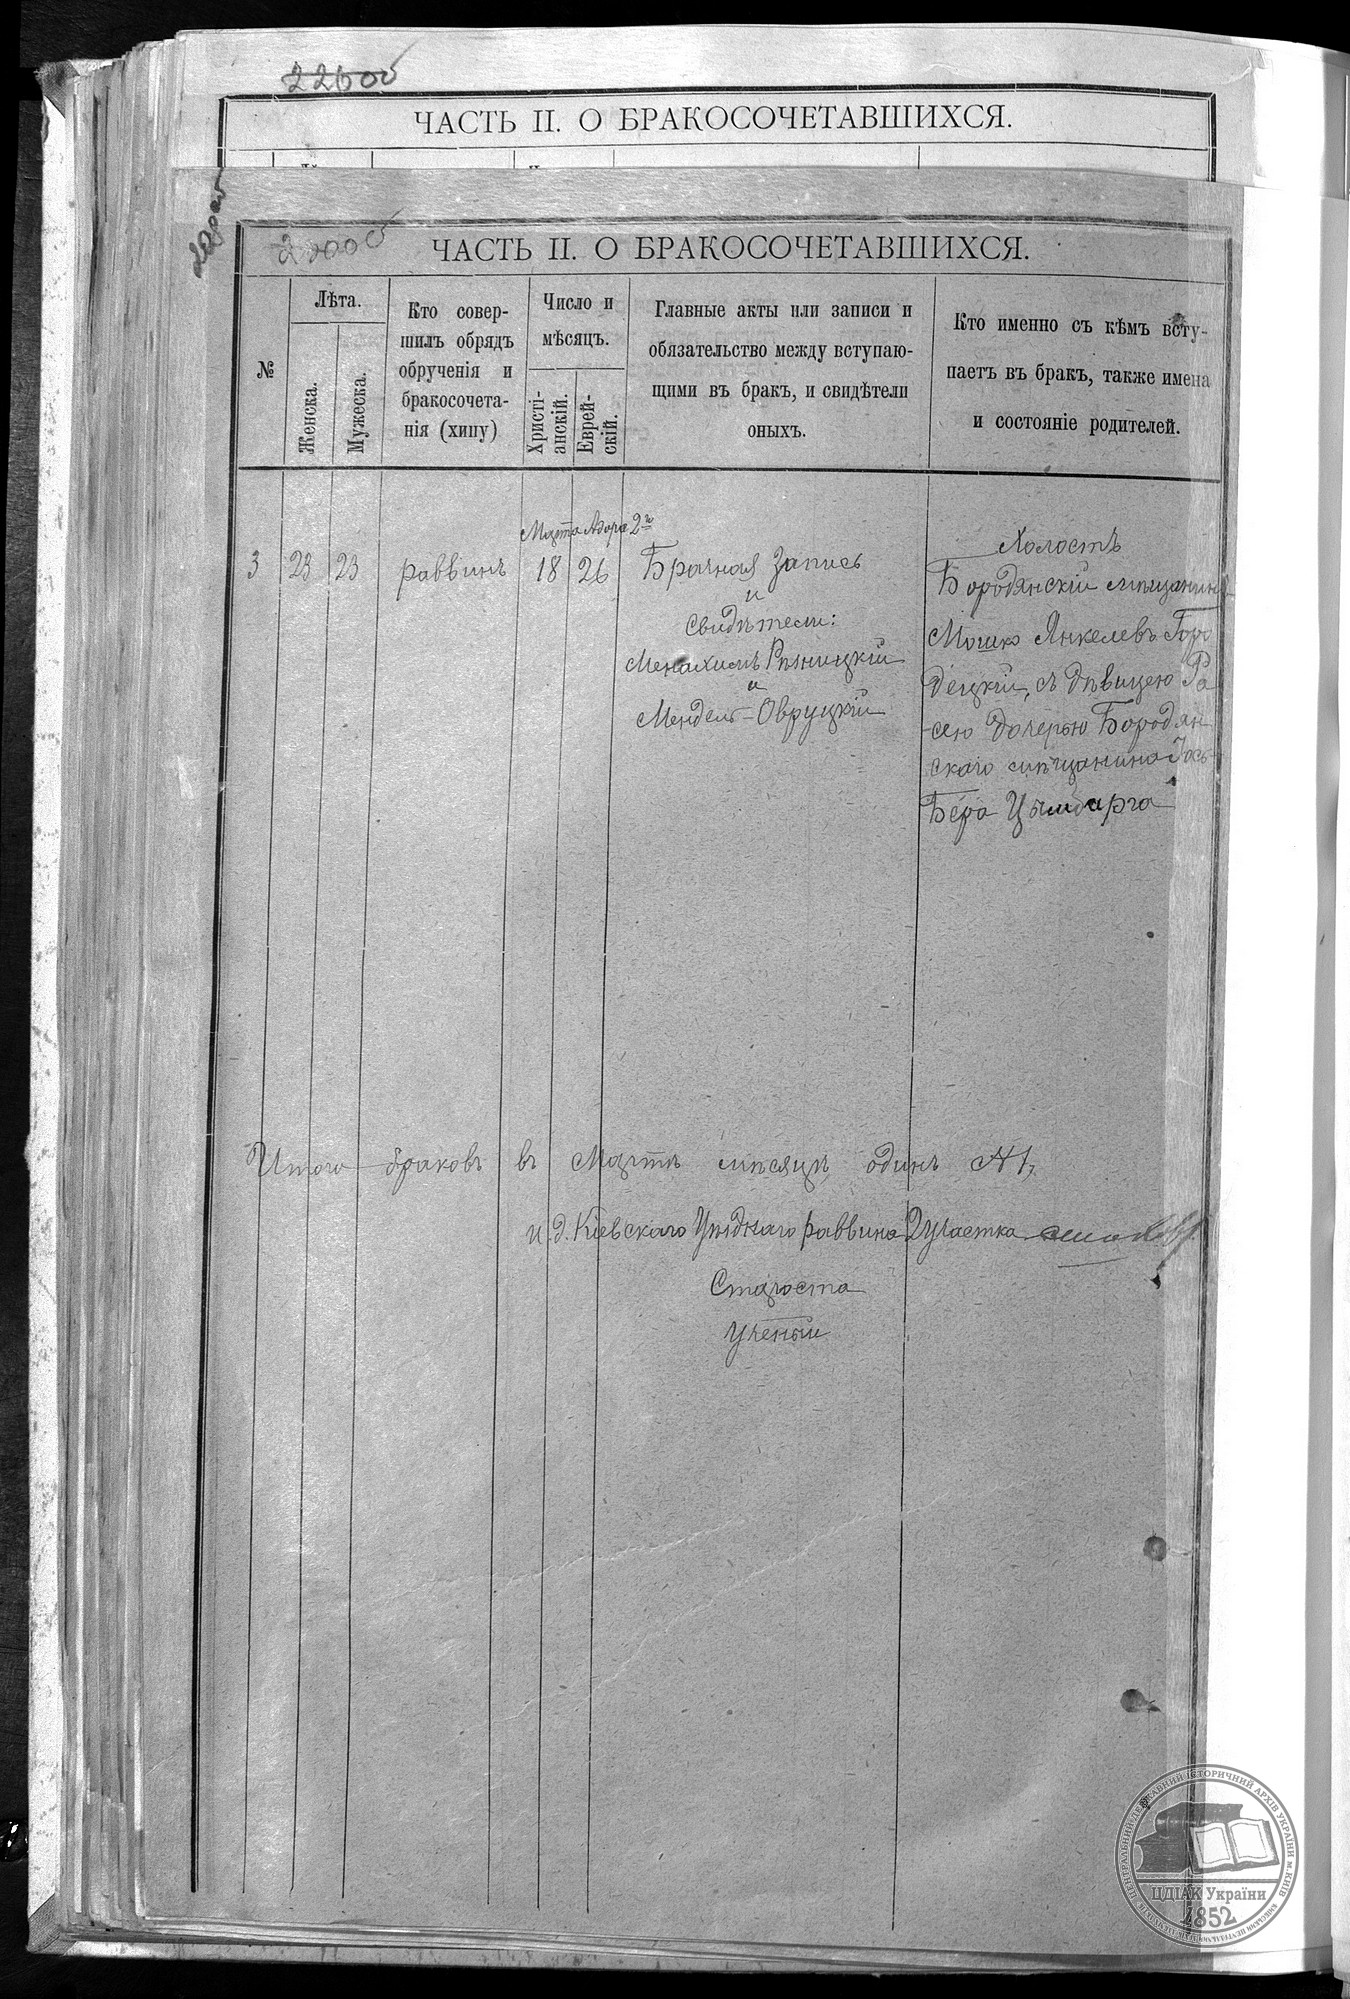 ЧАСТЬ II. О БРАКОСОЧЕТАВШИХСЯ.
ЧАСТЬ II. О БРАКОСОЧЕТАВШИХСЯ.
№
Лѣта.
Женска.
Мужеска.
Кто совер-
шилъ обрядъ
обрученія и
бракосочета-
нія (хипу)
Число и
мѣсяцъ.
Христі-
анскій.
Еврей-
скій.
Главные акты или записи и
обязательство между вступаю-
щими въ бракъ, и свидѣтели
оныхъ.
Кто именно съ кѣмъ всту-
паетъ въ бракъ, также имена
и состояніе родителей.
3
23
23
раввинъ
Марта
18
Адора 2го
26
Брачная Запись
и
свидѣтели:
Менахимъ Рѣзницкій
и
Мендель-Овруцкій
Холостъ
Бородянскій мѣщанинъ
Мошко Янкелевъ Горо
децкій, съ дѣвицею Ра
сею дочерью Бородян
скаго мѣщанина Іось
Бера Цымбарга
Итого браковъ въ Мартѣ мѣсяцѣ одинъ №1,
и. д. Кіевскаго Уѣзднаго раввина 2 участка
Староста
Ученый
ЦЕНТРАЛЬНИЙ ДЕРЖАВНИЙ ІСТОРИЧНИЙ АРХІВ УКРАЇНИ м. КИЇВ
ЦДІАК України
1852